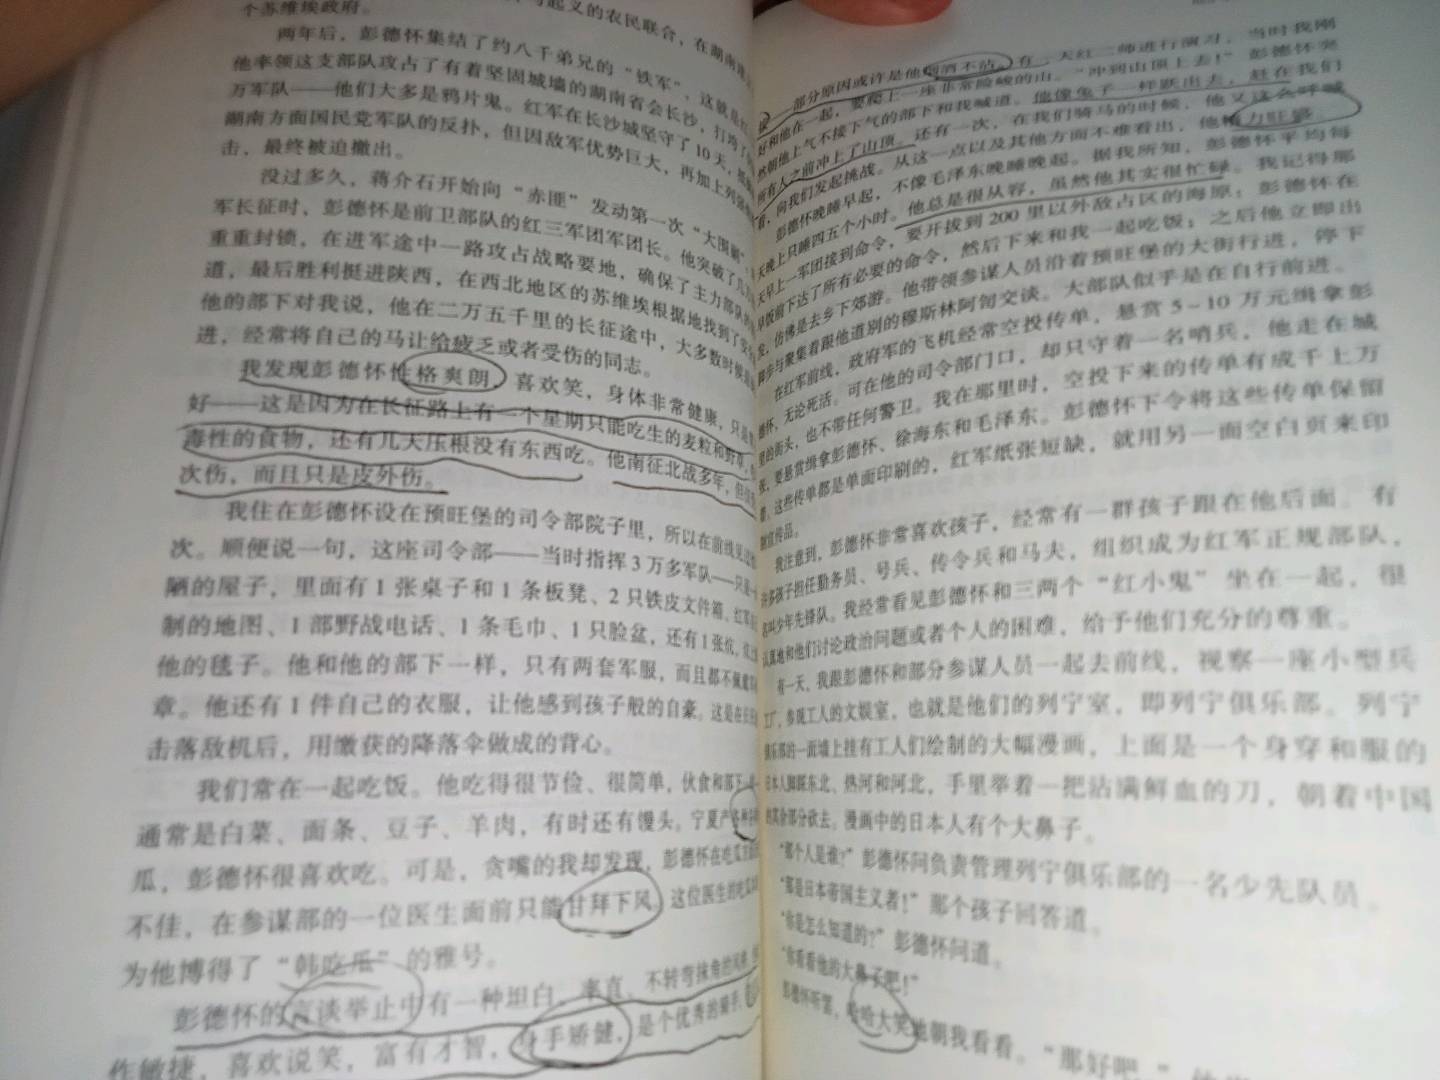 个苏维埃政府。
起义的农民联合，在湖南
两年后，彭德怀集结了约八千弟兄的“铁军”，这就是
他率领这支部队攻占了有着坚固城墙的湖南省会长沙，打垮了
万军队——他们大多是鸦片鬼。红军在长沙城坚守了10天，
湖南方面国民党军队的反扑，但因敌军优势巨大，再加上列强
击，最终被迫撤出。
没过多久，蒋介石开始向“赤匪”发动第一次“大围剿”
军长征时，彭德怀是前卫部队的红三军团军团长。他突破了几
重重封锁，在进军途中一路攻占战略要地，确保了主力部队
道，最后胜利挺进陕西，在西北地区的苏维埃根据地找到了
他的部下对我说，他在二万五千里的长征途中，大多数时候
进，经常将自己的马让给疲乏或者受伤的同志。
我发现彭德怀性格爽朗，喜欢笑，身体非常健康，只是
好——这是因为在长征路上有一个星期只能吃生的麦粒和野草，
毒性的食物，还有几天压根没有东西吃。他南征北战多年，但
次伤，而且只是皮外伤。
我住在彭德怀设在预旺堡的司令部院子里，所以在前线见
次。顺便说一句，这座司令部——当时指挥3万多军队——只是
陋的屋子，里面有1张桌子和1条板凳、2只铁皮文件箱、红军
制的地图、1部野战电话、1条毛巾、1只脸盆，还有1张炕，
他的毯子。他和他的部下一样，只有两套军服，而且都不佩戴
章。他还有1件自己的衣服，让他感到孩子般的自豪。这是在
击落敌机后，用缴获的降落伞做成的背心。
我们常在一起吃饭。他吃得很节俭、很简单，伙食和部下
通常是白菜、面条、豆子、羊肉，有时还有馒头。宁夏产各种
瓜，彭德怀很喜欢吃。可是，贪嘴的我却发现，彭德怀在吃瓜
不佳，在参谋部的一位医生面前只能甘拜下风，这位医生的吃瓜
为他博得了“韩吃瓜”的雅号。
彭德怀的言谈举止中有一种坦白、率直、不转弯抹角的
作敏捷，喜欢说笑，富有才智，身手矫健，是个优秀的骑手，
部分原因或许是他烟酒不沾。有一天红二师进行演习，当时我刚
好和他在一起，要爬上一座非常险峻的山。“冲到山顶上去！”彭德怀突
然朝他上气不接下气的部下和我喊道。他像兔子一样跃出去，赶在我们
所有人之前冲上了山顶。还有一次，在我们骑马的时候，他又这么呼喊
着，向我们发起挑战。从这一点以及其他方面不难看出，他精力旺盛。
彭德怀晚睡早起，不像毛泽东晚睡晚起。据我所知，彭德怀平均每
天晚上只睡四五个小时。他总是很从容，虽然他其实很忙碌。我记得那
天早上一军团接到命令，要开拔到200里以外敌占区的海原；彭德怀在
早饭前下达了所有必要的命令，然后下来和我一起吃饭；之后他立即出
发，仿佛是去乡下郊游。他带领参谋人员沿着预旺堡的大街行进，停下
脚步与聚集着跟他道别的穆斯林阿訇交谈。大部队似乎是在自行前进。
在红军前线，政府军的飞机经常空投传单，悬赏5～10万元缉拿彭
德怀，无论死活。可在他的司令部门口，却只守着一名哨兵，他走在城
里的街头，也不带任何警卫。我在那里时，空投下来的传单有成千上万
张，要悬赏缉拿彭德怀、徐海东和毛泽东。彭德怀下令将这些传单保留
着，这些传单都是单面印刷的，红军纸张短缺，就用另一面空白页来印
制宣传品。
我注意到，彭德怀非常喜欢孩子，经常有一群孩子跟在他后面。有
许多孩子担任勤务员、号兵、传令兵和马夫，组织成为红军正规部队，
名叫少年先锋队。我经常看见彭德怀和三两个“红小鬼”坐在一起，很
认真地和他们讨论政治问题或者个人的困难，给予他们充分的尊重。
有一天，我跟彭德怀和部分参谋人员一起去前线，视察一座小型兵
工厂，参观工人的文娱室，也就是他们的列宁室，即列宁俱乐部。列宁
俱乐部的一面墙上挂有工人们绘制的大幅漫画，上面是一个身穿和服的
日本人脚踩东北、热河和河北，手里举着一把沾满鲜血的刀，朝着中国
的其余部分砍去。漫画中的日本人有个大鼻子。
“那个人是谁？”彭德怀问负责管理列宁俱乐部的一名少先队员。
“那是日本帝国主义者！”那个孩子回答道。
“你是怎么知道的？”彭德怀问道。
“你看看他的大鼻子吧！”
彭德怀听罢，哈哈大笑地朝我看看。“那好吧，”